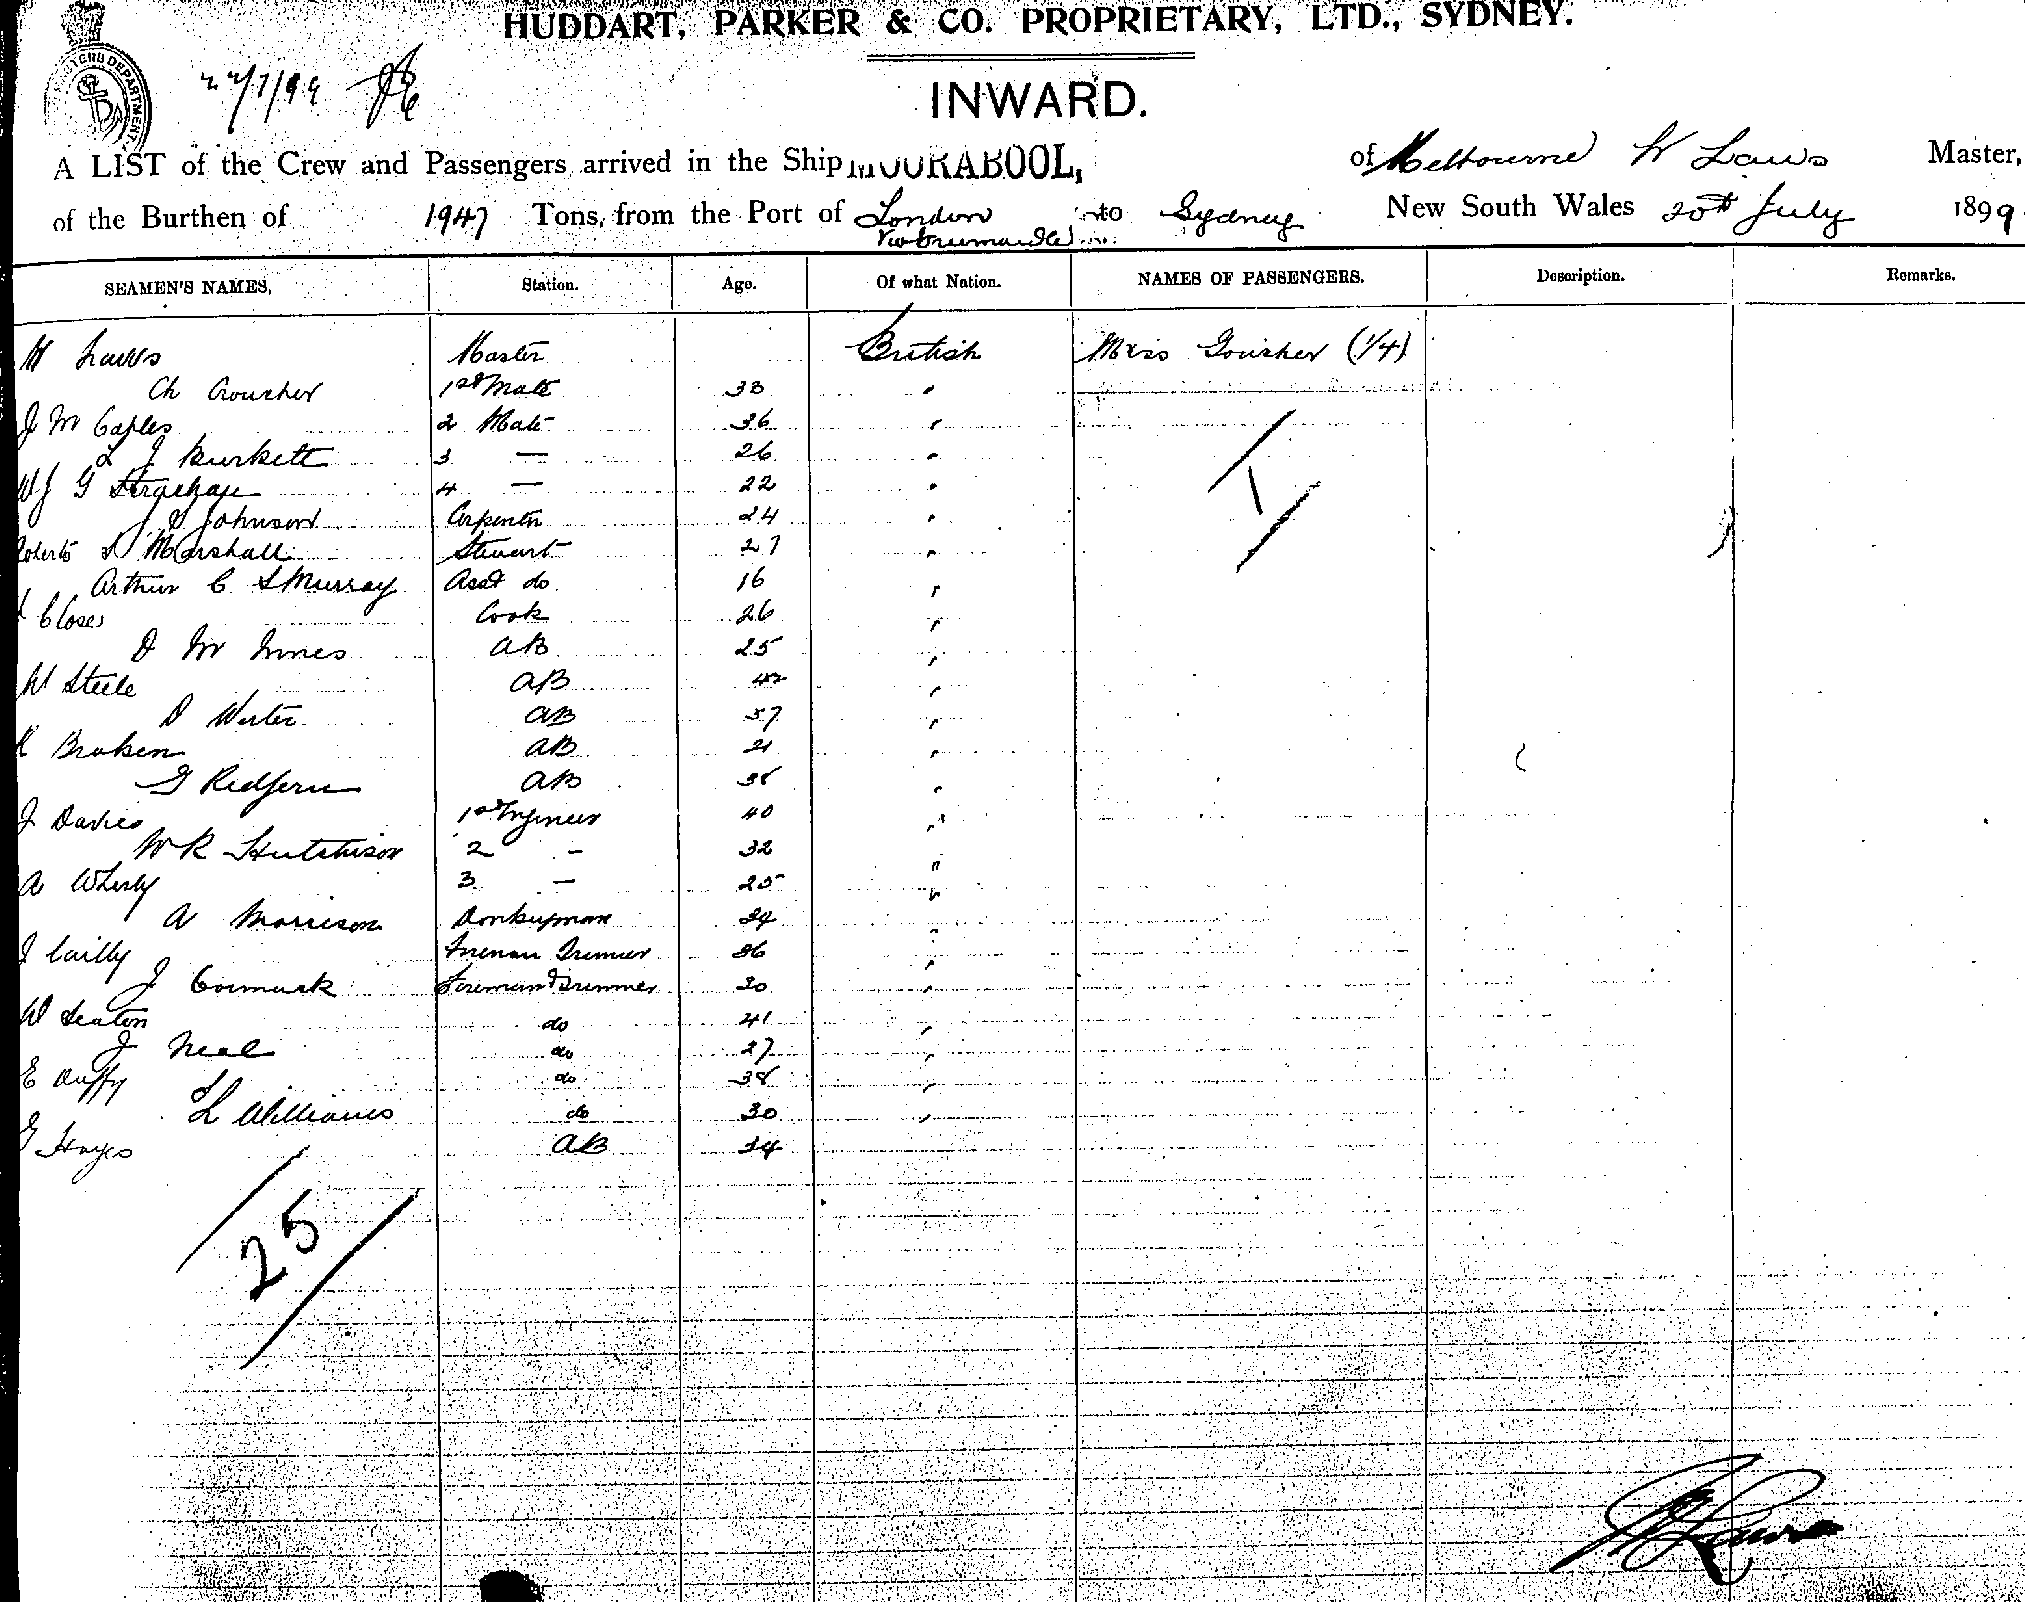 HUDDART, PARKER & CO. PROPRIETARY, LTD., SYDNEY.
DEPARTMENT.
INWARD.
A LIST of the Crew and Passengers arrived in the Ship MOORABOOL, of Melbourne W Laws Master,
of the Burthen of 1947 Tons, from the Port of London to Sydney New South Wales 20th July 1899
SEAMEN'S NAMES, Station. Age. Of what Nation. NAMES OF PASSENGERS. Description. Remarks.
W Laws Master British Miss (1/4)
Ch Croucher 1st Mate 33 "
J Mc Caples 2 Mate 36 "
L J Burkett 3 — 26 "
W J G Strachan 4 — 22 "
J Johnson Carpenter 24 "
Marshall Stewart 27 "
Arthur C S Murray Asst do 16 "
Closes Cook 26 "
D Mc Innes AB 25 "
W Steele AB 42 "
D Wester AB 57 "
Braken AB 21 "
G Redfern AB 38 "
J Davies 1st Engineer 40 "
W R Hutchison 2 — 32 "
A 3 — 25 "
A Morrison Donkeyman 34 "
J Fireman Trimmer 36 "
J Cormack Fireman & Trimmer 30 "
W Seaton do 41 "
J Neal do 27 "
E Duffy do 38 "
L Williams do 30 "
G Hayes AB 34
1
25
W Laws